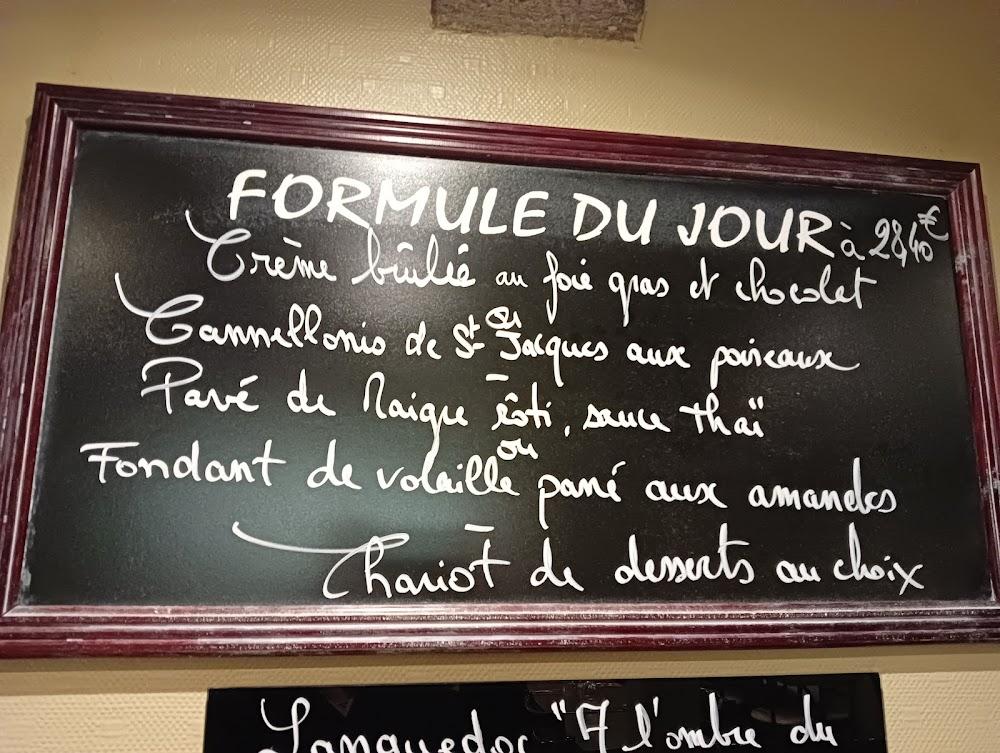 FORMULE DU JOUR à 28,40€
Crème brûlée au foie gras et chocolat
ou
Cannellonis de St Jacques aux poireaux
-
Pavé de Maigre rôti, sauce Thaï
ou
Fondant de volaille pané aux amandes
-
Chariot de desserts au choix
Languedoc "A l'ombre du